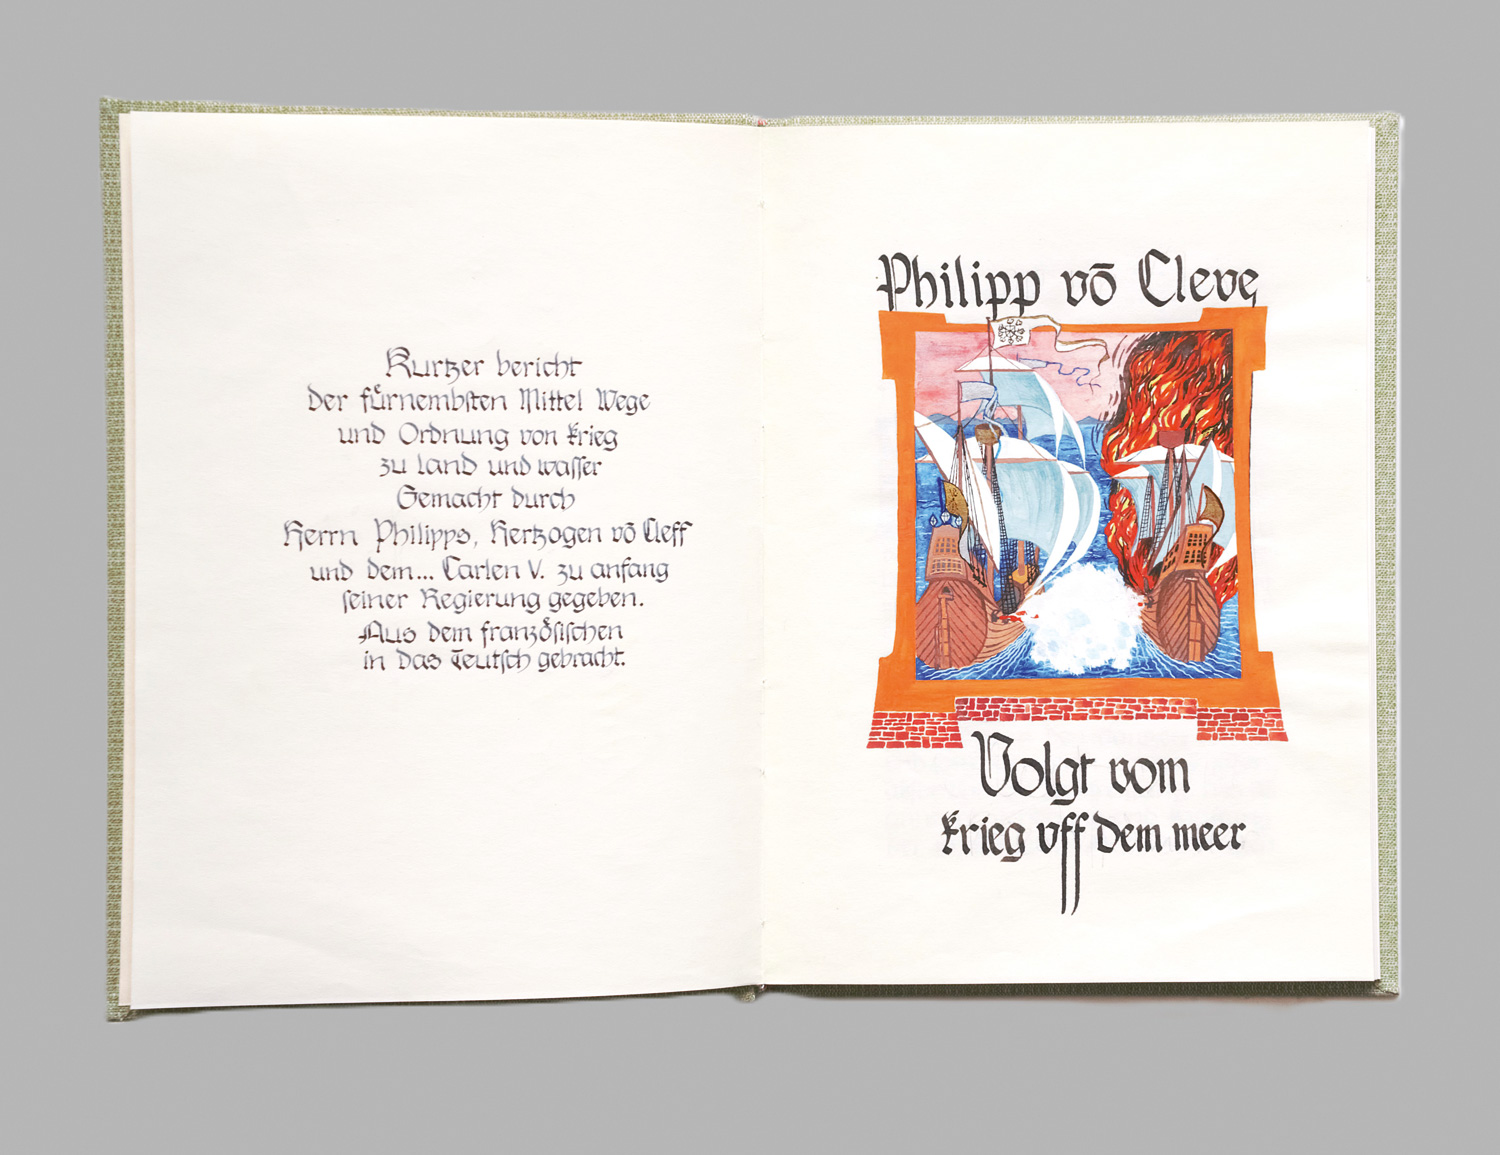 Kurtzer bericht
der fůrnembsten Mittel Wege
und Ordnung von krieg
zu land und wasser
Gemacht durch
Herrn Philipps, Hertzogen vō Cleff
und dem... Carlen V. zu anfang
seiner Regierung gegeben.
Aus dem französischen
in das Teutsch gebracht.
Philipp vō Cleve
Volgt vom
krieg vff dem meer